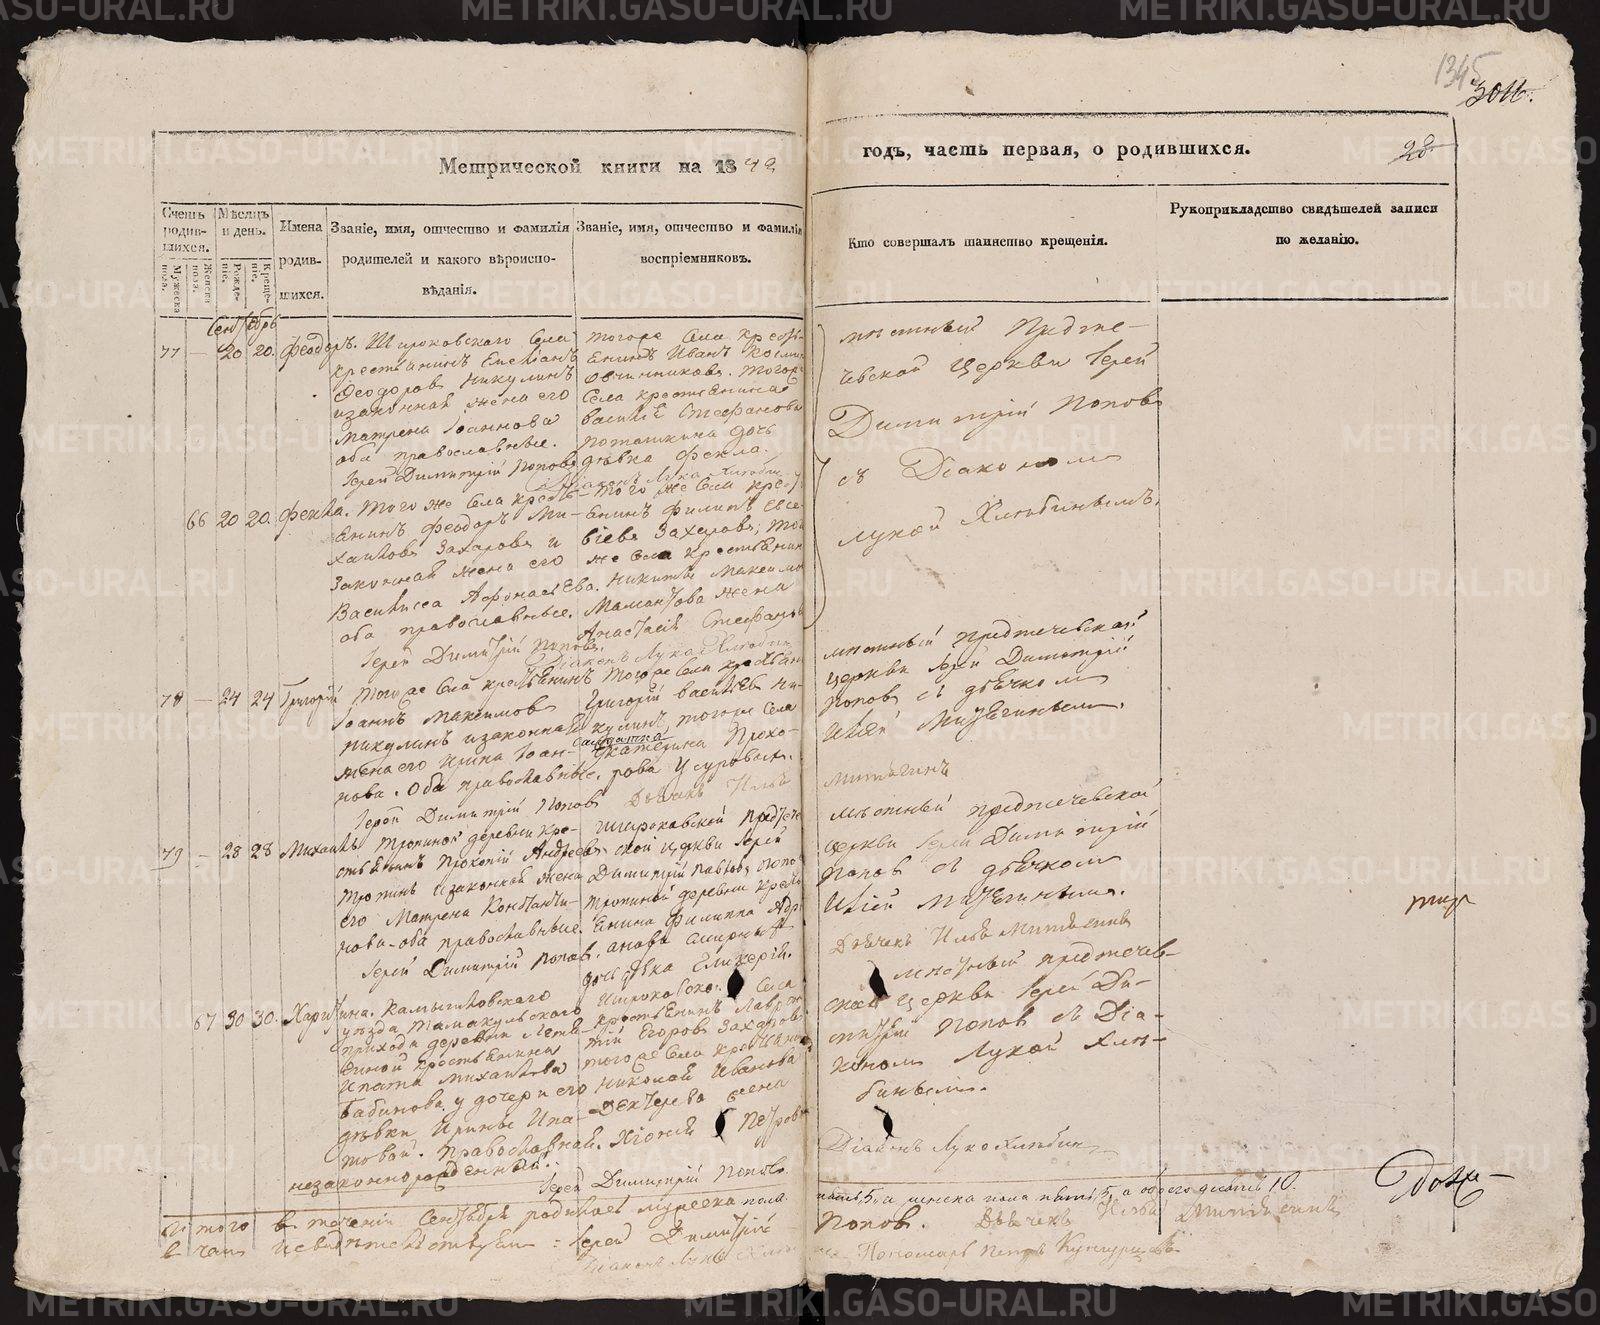 1345
301б.
Метрической книги на 1842
годъ, часть первая, о родившихся.
28
Счетъ родив-шихся.
Мужеска пола.
Женска пола.
Мѣсяцъ и день.
Рожде-ніе.
Креще-ніе.
Имена родив-шихся.
Званіе, имя, отчество и фамилія родителей и какого вѣроиспо-вѣданія.
Званіе, имя, отчество и фамилія воспріемниковъ.
Кто совершалъ таинство крещенія.
Рукоприкладство свидѣтелей записи по желанію.
Сентябрь
77 — 20 20. Феодоръ.
Широковского Села
крестьянинъ Емельянъ
Феодоровъ Никулинъ
и законная жена его
Матрена Іоаннова
оба православные.
Іерей Димитрій Поповъ
тогоже Села кресть-
янинъ Иванъ Козмин
Овчинниковъ. тогоже
Села крестьянина
Василія Стефанова
Поташкина дочь
дѣвка Фекла.
Діаконъ Лука Хлюбин
мѣстный Предте-
чевской Церкви Іерей
Димитрій Поповъ
съ Діакономъ
Лукой Хлюбинымъ.
66 20 20. Фекла.
Того же Села кресть-
янинъ Феодоръ Ми-
хайловъ Захаровъ и
законная жена его
Василиса Афонасьева.
оба православные.
Іерей Димитрій Поповъ.
того же Села крест
янинъ Филипъ Евсе
віевъ Захаровъ; того
же Села крестьянин
Никиты Максимо
Мамонтова жена
Анастасія Стефанов
Діаконъ Лука Хлюбин
78 — 24 24 Григорій
Того же Села крестьянинъ
Іоаннъ Максимовъ
Никулинъ и законная
жена его Ирина Іоан-
нова. Оба православные.
Іерей Димитрій Поповъ
того же Села крестьян
Григорій Васильевъ Ни-
кулинъ, тогоже Села
Екатерина Прохо-
рова
Дьячекъ Илья
мѣстный предтечевской
церкви Іерей Димитрій
Поповъ съ дьячкомъ
Ильей Митягинымъ.
Митягинъ
79 — 28 28 Михаилъ
Тропиной деревни кре-
стьянинъ Прокопій Андреевъ
Тропинъ и законная жена
его Матрена Константи-
нова-оба православные.
Іерей Димитрій Поповъ.
Широковской Предтече
ской церкви Іерей
Димитрій Павловъ Попов
Тропиной деревни кресть
янина Филиппа
дочь дѣвка Гликерія.
мѣстный предтечевской
церкви Іерей Димитрій
Поповъ съ дьячкомъ
Ильей Митягинымъ.
Дьячекъ Илья Митягинъ
67 30 30. Харитина.
Камышловского
уѣзда Тамакульского
прихода деревни
крестьянина
Ипата Михайлова
Бабинова у дочери его
дѣвки Ирины Ипа-
товой. Православной.
незаконнорожденный.
Іерей Димитрій Поповъ
Широковского Села
крестьянинъ Лаврен
тій Егоровъ Захаровъ
того же Села крестьянина
Николая Иванова
Дектерева жена
Хіонія Петров
мѣстный предтечев-
ской Церкви Іерей Ди-
митрій Поповъ съ Діа-
кономъ Лукой Хлю-
бинымъ.
Діаконъ Лука Хлюбинъ
Итого въ теченіи Сентября родилось мужеска пола
пять, 5. а женска пола пять, 5, а обоего десять 10.
въ чемъ и свидѣтельствуемъ: Іерей Димитрій
Поповъ. Дьячекъ Илья Митягинъ
Діаконъ Лука Хлюбин
Пономарь Петръ Кунгурцовъ
METRIKI.GASO-URAL.RU